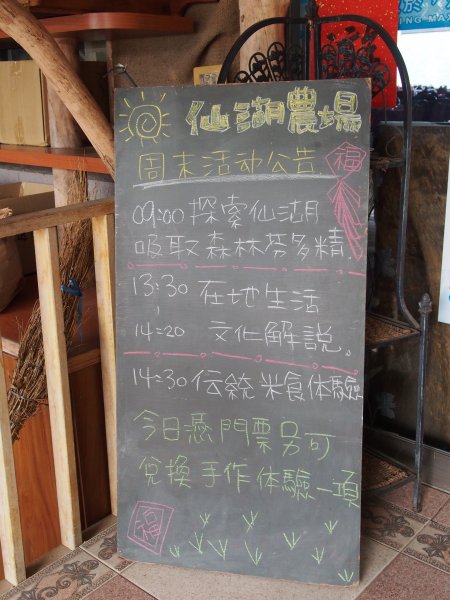 仙湖農場
周末活动公告
福
09:00 探索仙湖
吸取森林芬多精.
13:30 在地生活
14:20 文化解說。
14:30 伝統米食体驗
今日憑門票另可
兌換手作体驗一項